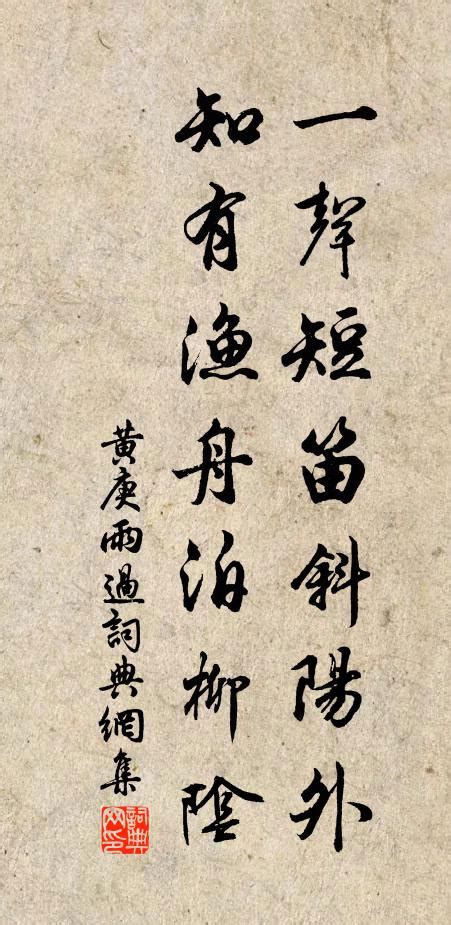 一聲短笛斜陽外
知有漁舟泊柳陰
黃庚雨過詞典網集
詞典網印